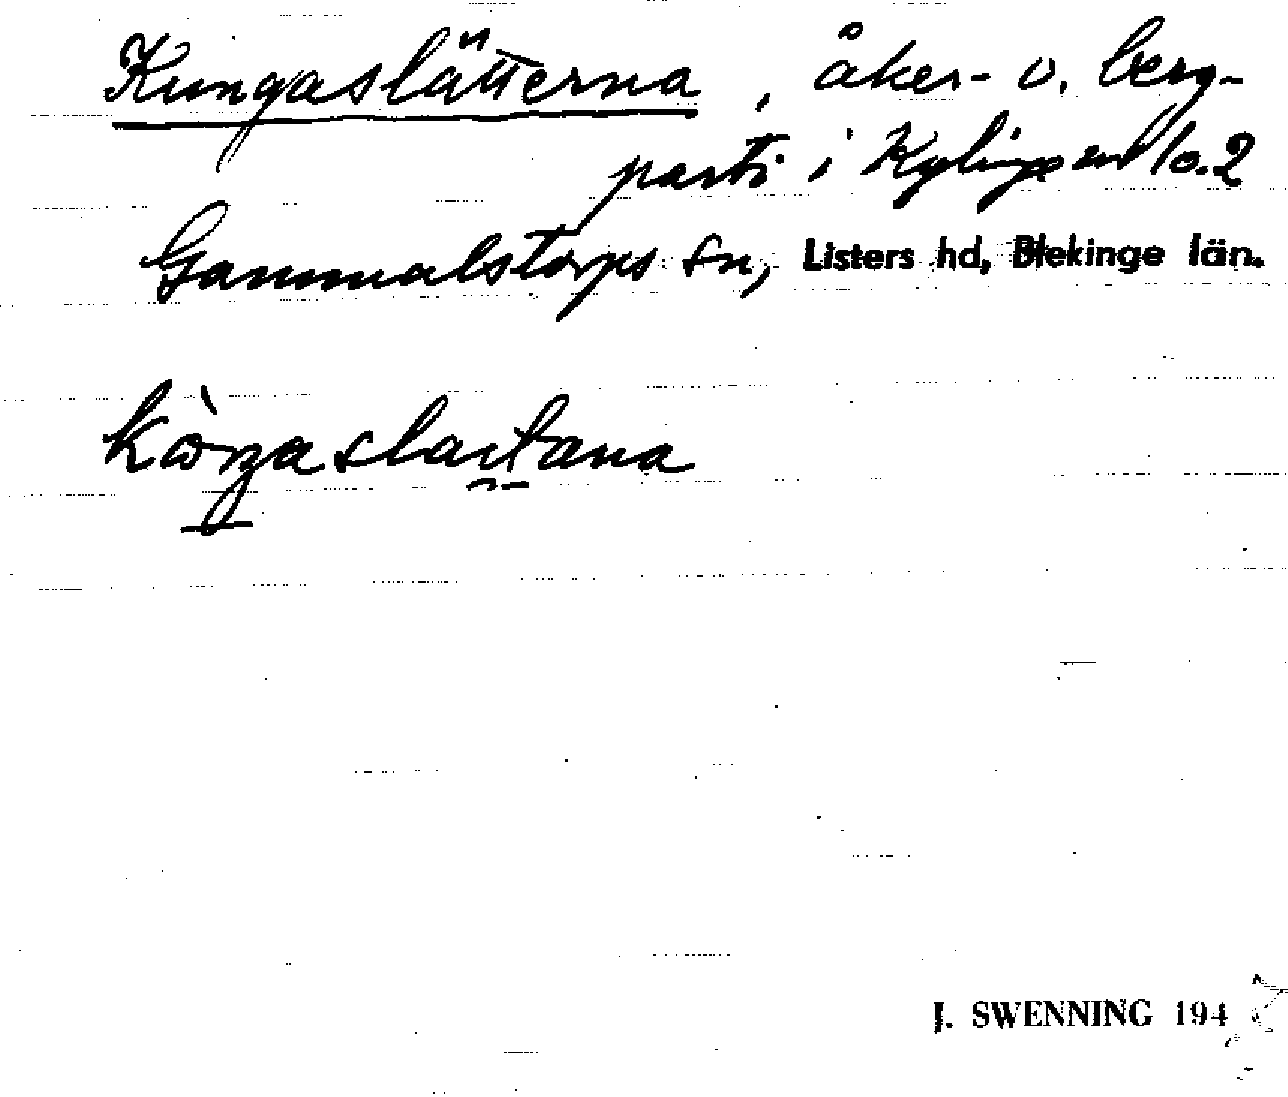 Kungaslätterna, åker- o. berg-
parti i Kylinge 1o.2
Gammalstorps sn, Listers hd, Blekinge län.
J. SWENNING 194